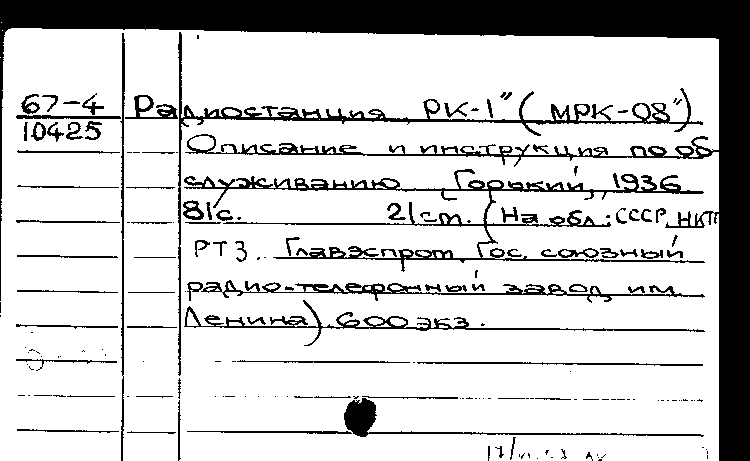 67-4
10425
Радиостанция „РК-1" (МРК-08")
Описание и инструкция по об-
служиванию [Горький], 1936
81с. 21см. (На обл.: СССР. НКТП
РТЗ. Главэспром. Гос. союзный
радио-телефонный завод им.
Ленина). 600 экз.